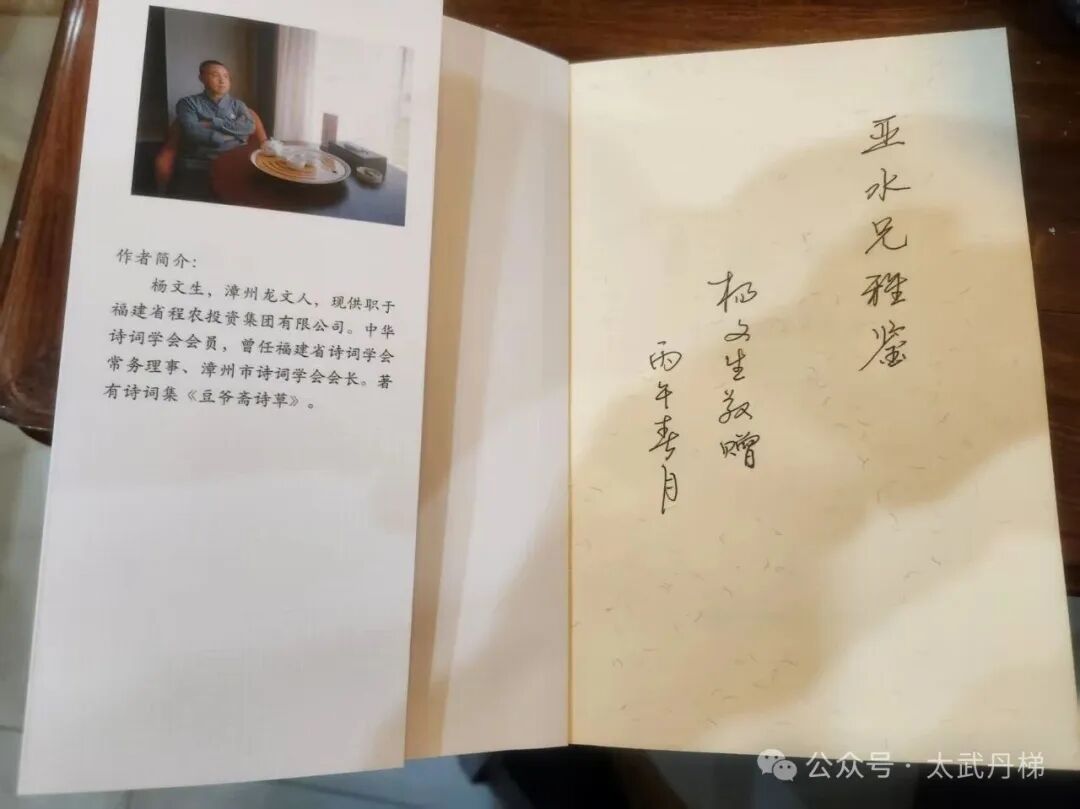 作者简介：
杨文生，漳州龙文人，现供职于
福建省程农投资集团有限公司。中华
诗词学会会员，曾任福建省诗词学会
常务理事、漳州市诗词学会会长。著
有诗词集《豆爷斋诗草》。
亚水兄雅鉴
杨文生敬赠
丙午春月
公众号·太武丹梯